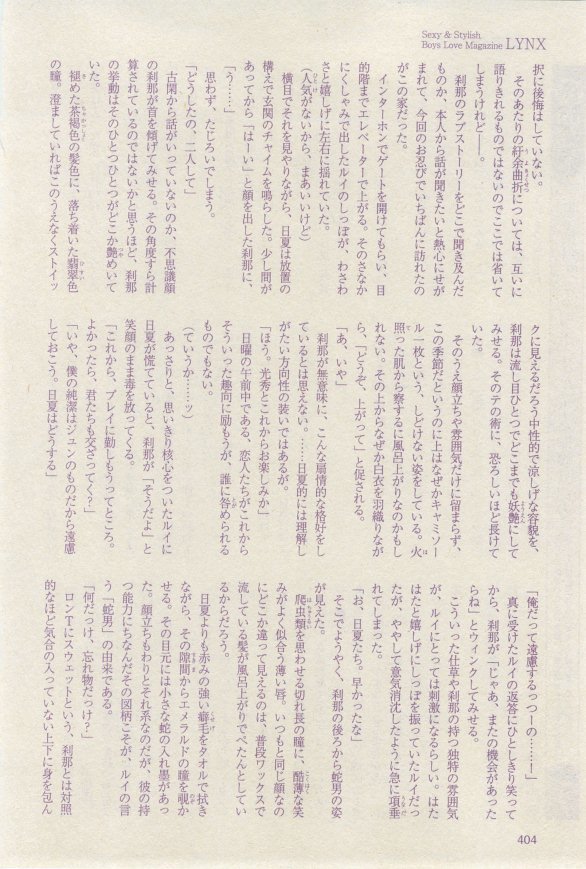 Sexy & Stylish
Boys Love Magazine LYNX
択に後悔はしていない。
そのあたりの紆余曲折については、互いに
語りきれるものではないのでここでは省いて
しまうけれど――。
刹那のラブストーリーをどこで聞き及んだ
ものか、本人から話が聞きたいと熱心にせが
まれて、今回のお忍びでいちばんに訪れたの
がこの家だった。
インターホンでゲートを開けてもらい、目
的階までエレベーターで上がる。そのさなか
にくしゃみで出したルイのしっぽが、わさわ
さと嬉しげに左右に揺れていた。
(人気がないから、まあいいけど)
横目でそれを見やりながら、日夏は放置の
構えで玄関のチャイムを鳴らした。少し間が
あってから「はーい」と顔を出した刹那に、
「う……」
思わず、たじろいでしまう。
「どうしたの、二人して」
古閑から話がいっていないのか、不思議顔
の刹那が首を傾げてみせる。その角度すら計
算されているのではないかと思うほど、刹那
の挙動はそのひとつひとつがどこか艶めいて
いた。
褪めた茶褐色の髪色に、落ち着いた翡翠色
の瞳。澄ましていればこのうえなくストイッ
クに見えるだろう中性的で涼しげな容貌を、
刹那は流し目ひとつでどこまでも妖艶にして
みせる。そのテの術に、恐ろしいほど長けて
いた。
そのうえ顔立ちや雰囲気だけに留まらず、
この季節だというのに上はなぜかキャミソー
ル一枚という、しどけない姿をしている。火
照った肌から察するに風呂上がりなのかもし
れない。その上からなぜか白衣を羽織りなが
ら、「どうぞ、上がって」と促される。
「あ、いや」
刹那が無意味に、こんな扇情的な格好をし
ているとは思えない。……日夏的には理解し
がたい方向性の装いではあるが。
「ほう。光秀とこれからお楽しみか」
日曜の午前中である、恋人たちがこれから
そういった趣向に励もうが、誰に咎められる
ものでもない。
(ていうか……ッ)
あっさりと、思いきり核心をついたルイに
日夏が慌てていると、刹那が「そうだよ」と
笑顔のまま毒を放ってくる。
「これから、プレイに勤しもうってところ。
よかったら、君たちも交ざってく?」
「いや、僕の純潔はジュンのものだから遠慮
しておこう。日夏はどうする」
「俺だって遠慮するっつーの………!」
真に受けたルイの返答にひとしきり笑って
から、刹那が「じゃあ、またの機会があった
らね」とウィンクしてみせる。
こういった仕草や刹那の持つ独特の雰囲気
が、ルイにとっては刺激になるらしい。はた
はたと嬉しげにしっぽを振っていたルイだっ
たが、ややして意気消沈したように急に項垂
れてしまった。
「お、日夏たち。早かったな」
そこでようやく、刹那の後ろから蛇男の姿
が見えた。
爬虫類を思わせる切れ長の瞳に、酷薄な笑
みがよく似合う薄い唇。いつもと同じ顔なの
にどこか違って見えるのは、普段ワックスで
流している髪が風呂上がりでぺたんとしてい
るからだろう。
日夏よりも赤みの強い癖毛をタオルで拭き
ながら、その隙間からエメラルドの瞳を覗か
せる。その目元には小さな蛇の入れ墨があっ
た。顔立ちもわりとそれ系なのだが、彼の持
つ能力にちなんだその図柄こそが、ルイの言
う「蛇男」の由来である。
「何だっけ、忘れ物だっけ?」
ロンTにスウェットという、刹那とは対照
的なほど気合の入っていない上下に身を包ん
404